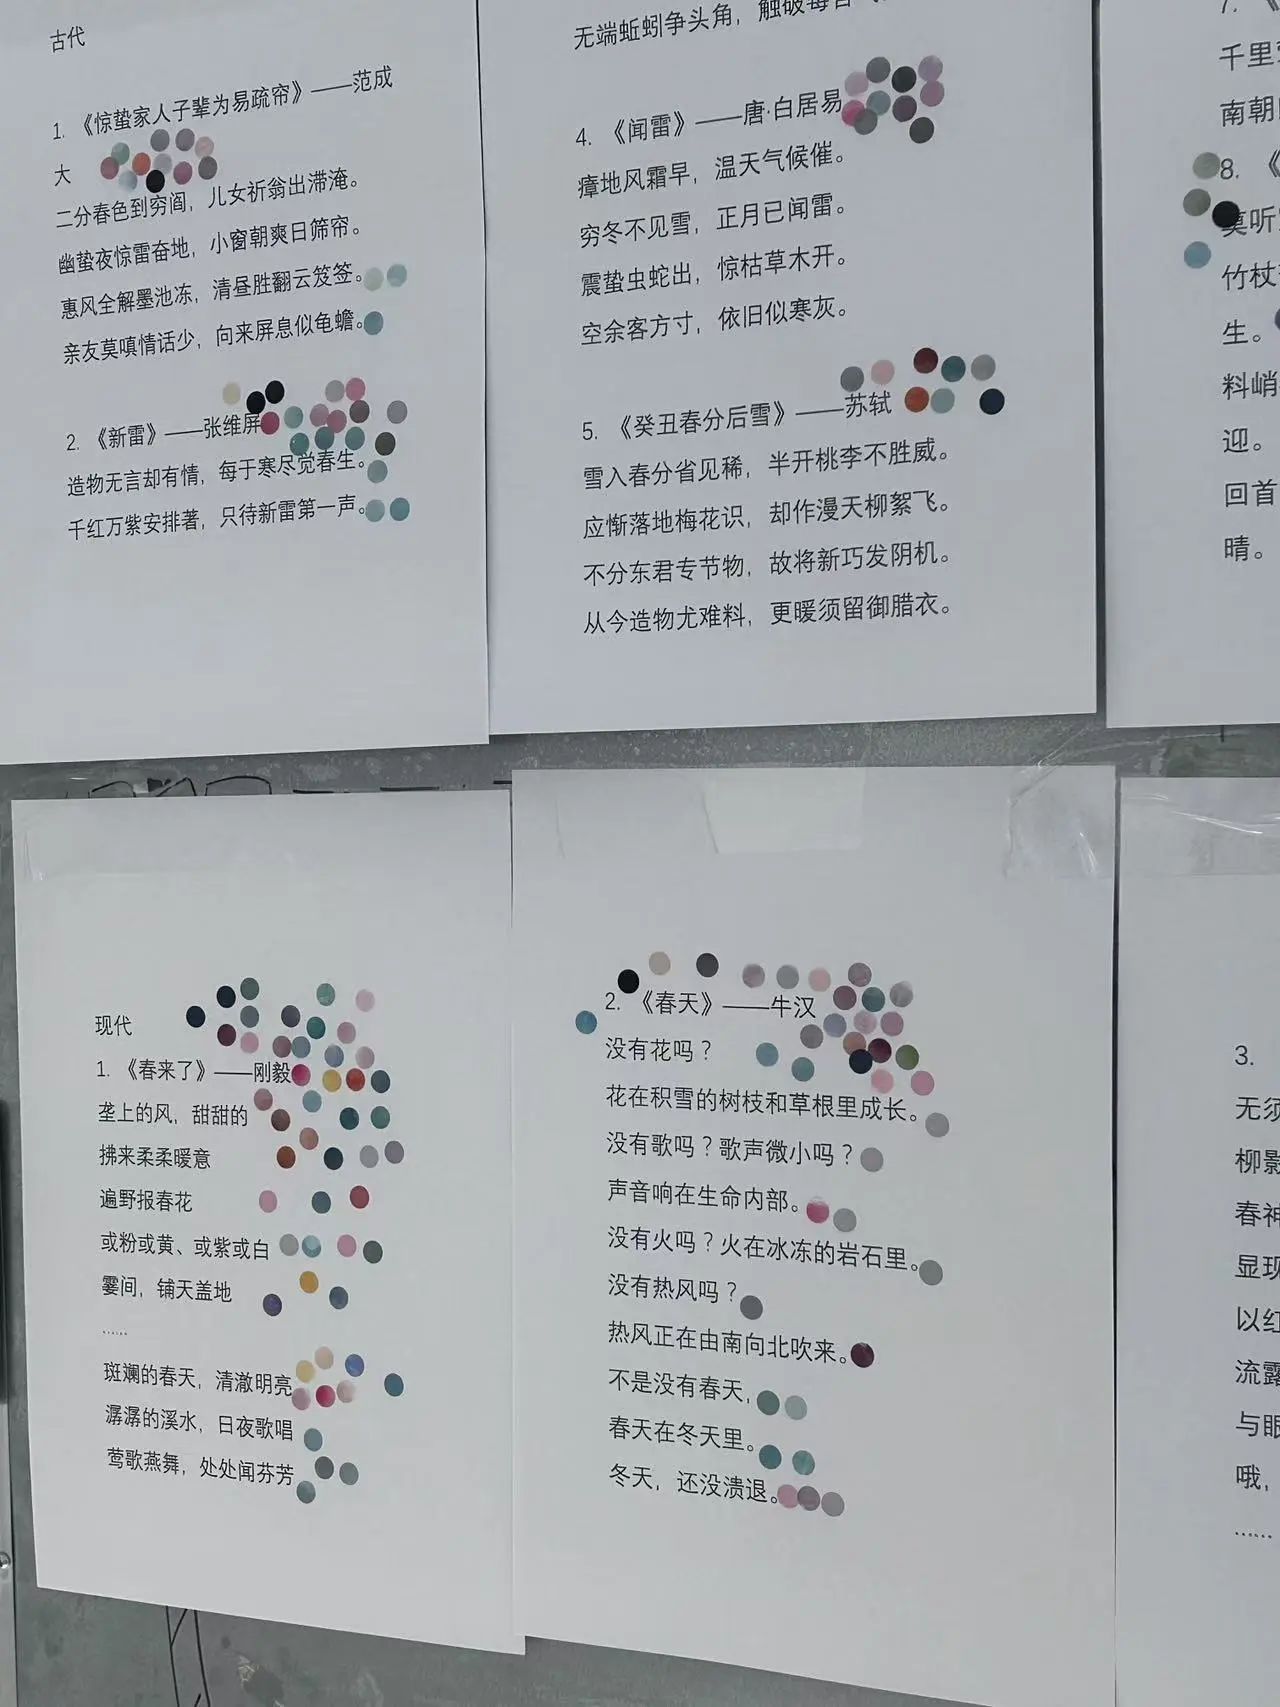 古代
1. 《惊蛰家人子辈为易疏帘》——范成
大
二分春色到穷阎，儿女祈翁出滞淹。
幽蛰夜惊雷奋地，小窗朝爽日筛帘。
惠风全解墨池冻，清昼胜翻云笈签。
亲友莫嗔情话少，向来屏息似龟蟾。
2. 《新雷》——张维屏
造物无言却有情，每于寒尽觉春生。
千红万紫安排著，只待新雷第一声。
无端蚯蚓争头角，触破莓苔
4. 《闻雷》——唐·白居易
瘴地风霜早，温天气候催。
穷冬不见雪，正月已闻雷。
震蛰虫蛇出，惊枯草木开。
空余客方寸，依旧似寒灰。
5. 《癸丑春分后雪》——苏轼
雪入春分省见稀，半开桃李不胜威。
应惭落地梅花识，却作漫天柳絮飞。
不分东君专节物，故将新巧发阴机。
从今造物尤难料，更暖须留御腊衣。
7. 《
千里
南朝
8. 《
莫听
竹杖
生。
料峭
迎。
回首
晴。
现代
1. 《春来了》——刚毅
垄上的风，甜甜的
拂来柔柔暖意
遍野报春花
或粉或黄、或紫或白
霎间，铺天盖地
……
斑斓的春天，清澈明亮
潺潺的溪水，日夜歌唱
莺歌燕舞，处处闻芬芳
2. 《春天》——牛汉
没有花吗？
花在积雪的树枝和草根里成长。
没有歌吗？歌声微小吗？
声音响在生命内部。
没有火吗？火在冰冻的岩石里。
没有热风吗？
热风正在由南向北吹来。
不是没有春天，
春天在冬天里。
冬天，还没溃退。
3.
无须
柳影
春神
显现
以红
流露
与眼
哦，
……